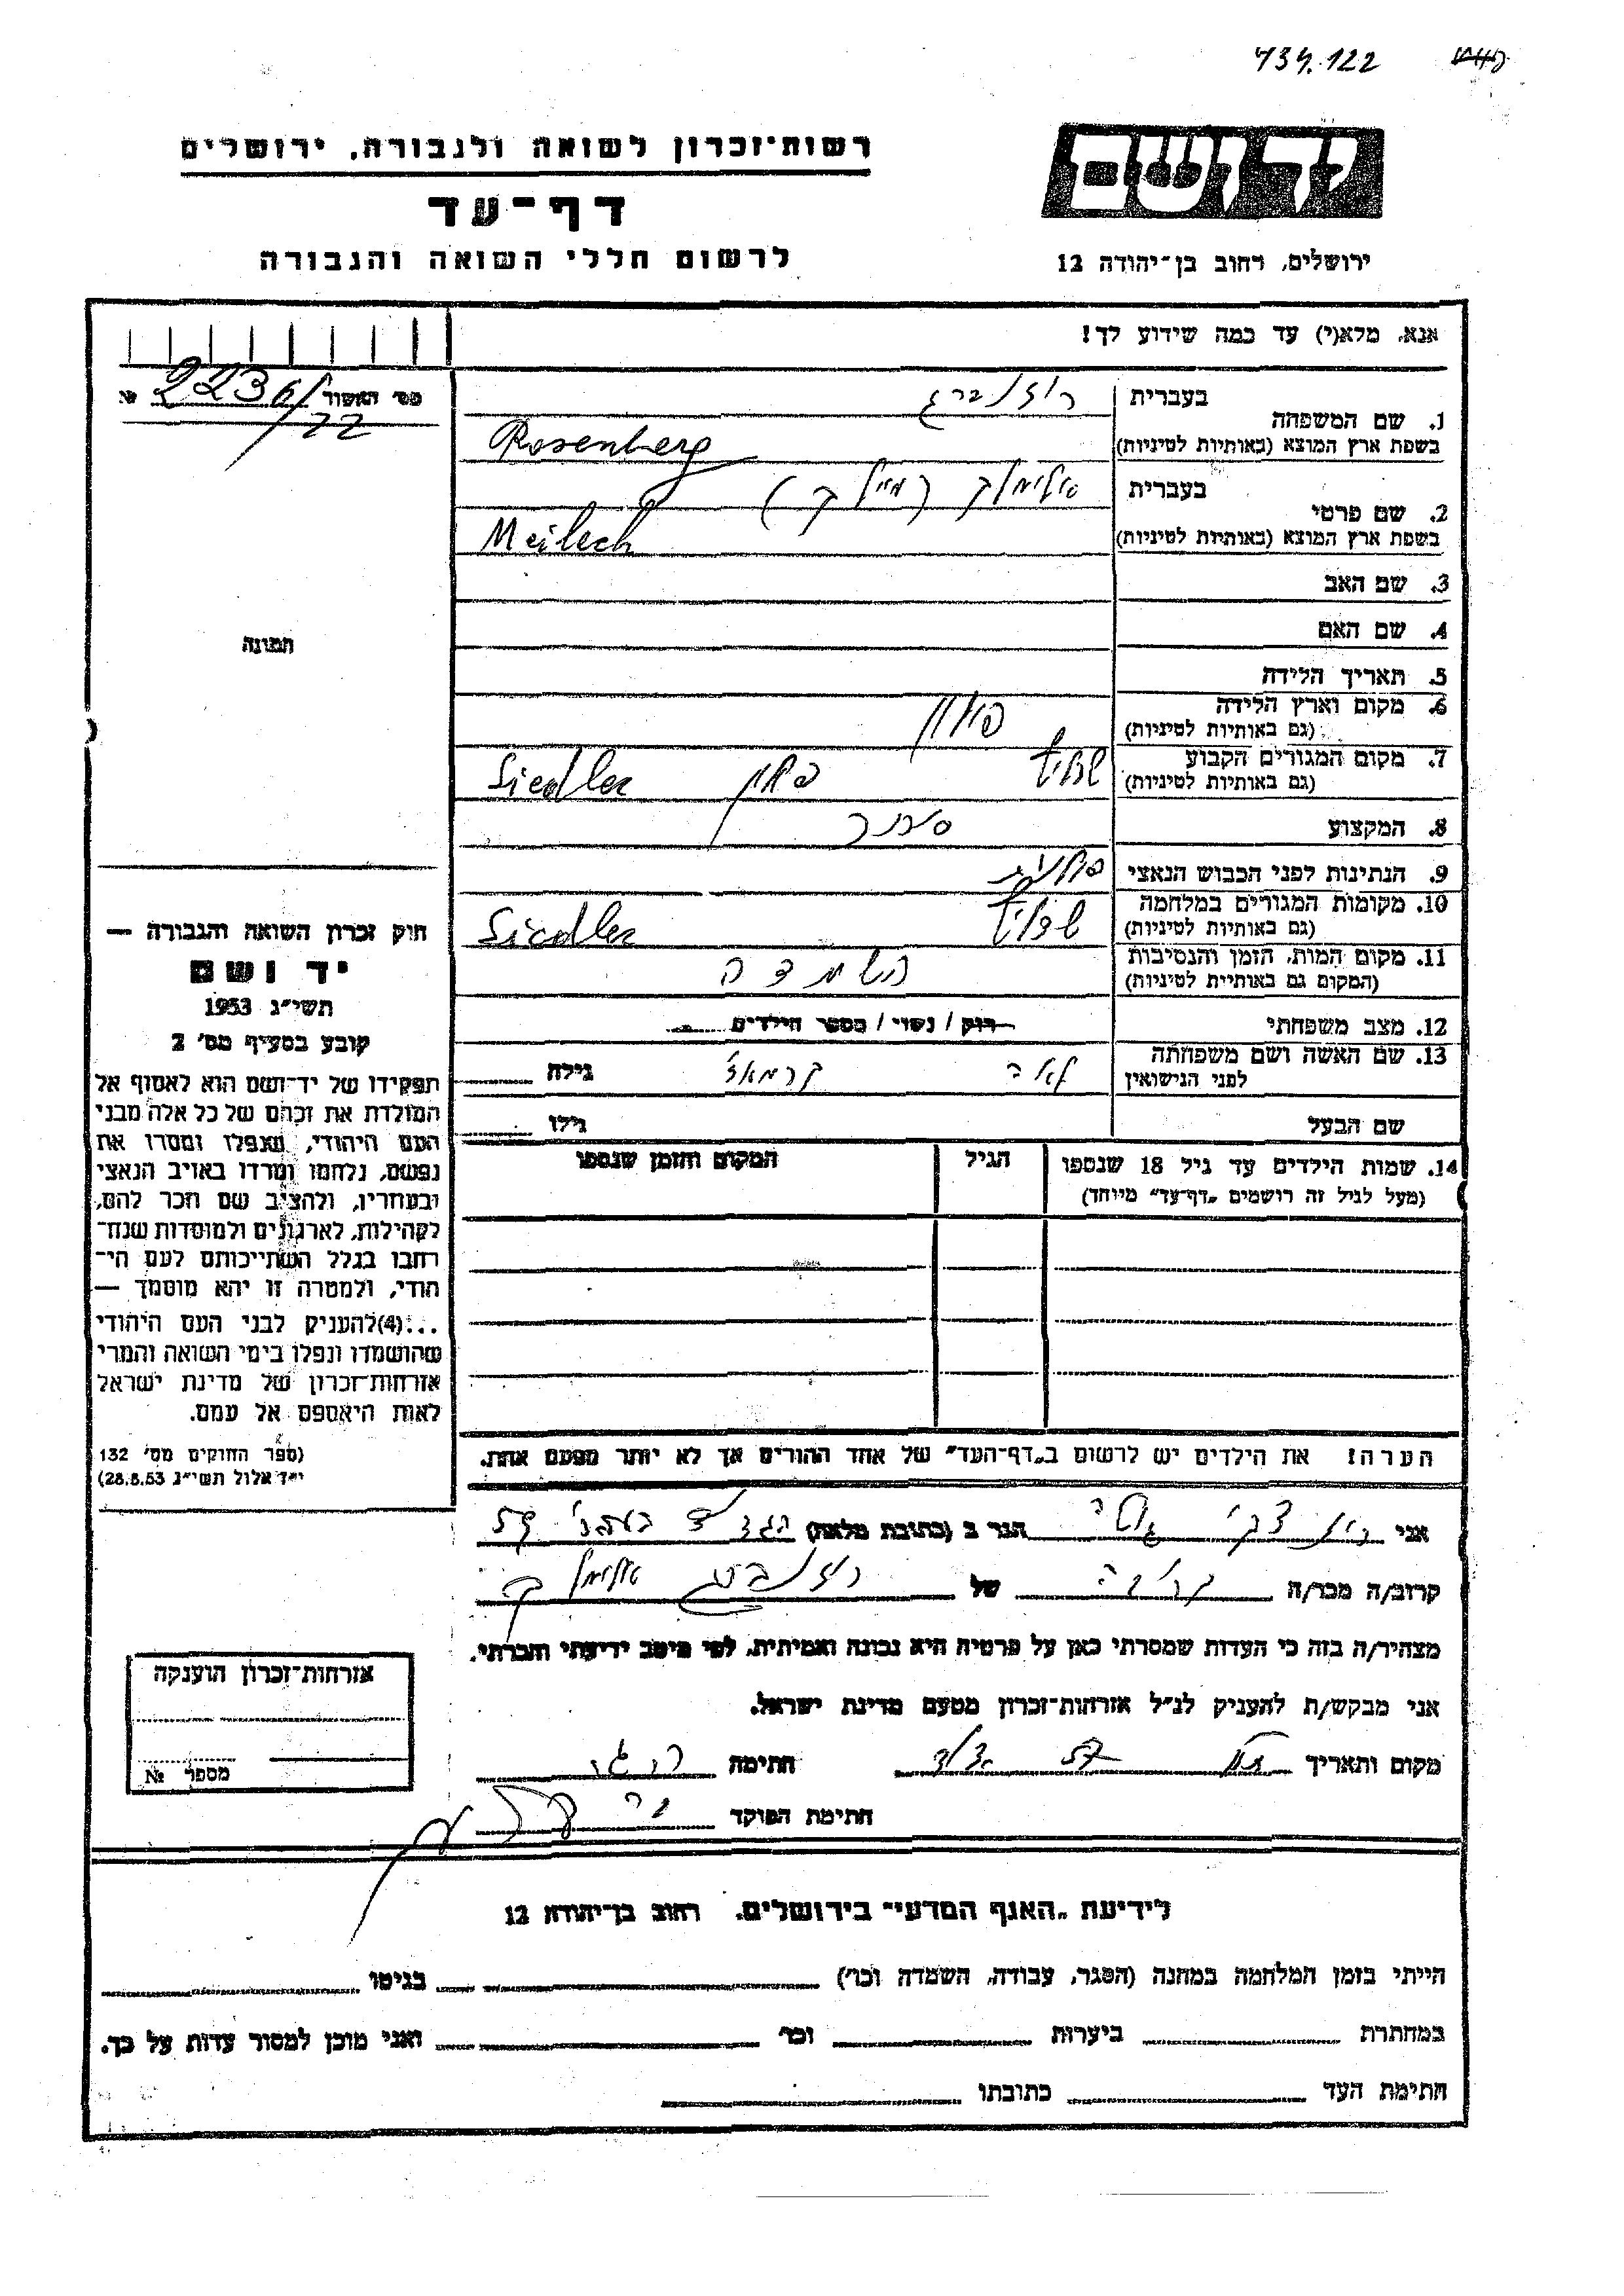 734.122
רשות־זכרון לשואה ולגבורה, ירושלים
דף־עד
לרשום חללי השואה והגבורה
יד ושם
ירושלים, רחוב בן־יהודה 12
אנא, מלא(י) עד כמה שידוע לך!
מס׳ האשור 2236/22 №
תמונה
1. שם המשפחה
בעברית רוזנברג
בשפת ארץ המוצא (באותיות לטיניות) Rosenberg
2. שם פרטי
בעברית אלימלך (מיילך)
בשפת ארץ המוצא (באותיות לטיניות) Meilech
3. שם האב
4. שם האם
5. תאריך הלידה
6. מקום וארץ הלידה
(גם באותיות לטיניות) פולין
7. מקום המגורים הקבוע
(גם באותיות לטיניות) שדליץ פולין Siedlec
8. המקצוע סנדלר
9. הנתינות לפני הכבוש הנאצי פולנית
10. מקומות המגורים במלחמה
(גם באותיות לטיניות) שדליץ Siedlec
11. מקום המות, הזמן והנסיבות
(המקום גם באותיות לטיניות) השמדה
12. מצב משפחתי רוק / נשוי / מספר הילדים
13. שם האשה ושם משפחתה
לפני הנישואין לאה גילה
שם הבעל גילו
14. שמות הילדים עד גיל 18 שנספו
(מעל לגיל זה רושמים „דף־עד" מיוחד)
הגיל
המקום והזמן שנספו
הערה! את הילדים יש לרשום ב„דף־העד" של אחד ההורים אך לא יותר מפעם אחת.
חוק זכרון השואה והגבורה —
יד ושם
תשי״ג 1953
קובע בסעיף מס׳ 2
תפקידו של יד־ושם הוא לאסוף אל
המולדת את זכרם של כל אלה מבני
העם היהודי, שנפלו ומסרו את
נפשם, נלחמו ומרדו באויב הנאצי
ובעוזריו, ולהציב שם וזכר להם,
לקהילות, לארגונים ולמוסדות שנח־
רבו בגלל השתייכותם לעם הי־
הודי, ולמטרה זו יהא מוסמך —
...(4)להעניק לבני העם היהודי
שהושמדו ונפלו בימי השואה והמרי
אזרחות־זכרון של מדינת ישראל
לאות היאספם אל עמם.
(ספר החוקים מס׳ 132
י״ד אלול תשי״ג 28.8.53)
אני הגר ב (כתובת מלאה)
קרוב/ה מכר/ה קרובה של רוזנברג אלימלך
מצהיר/ה בזה כי העדות שמסרתי כאן על פרטיה היא נכונה ואמיתית, לפי מיטב ידיעתי והכרתי.
אני מבקש/ת להעניק לנ״ל אזרחות־זכרון מטעם מדינת ישראל.
מקום ותאריך חתימה
חתימת הפוקד
אזרחות־זכרון הוענקה
מספר №
לידיעת „האגף המדעי" בירושלים, רחוב בן־יהודה 12
הייתי בזמן המלחמה במחנה (הסגר, עבודה, השמדה וכו׳) בגיטו
במחתרת ביערות וכו׳ ואני מוכן למסור עדות על כך.
חתימת העד כתובתו